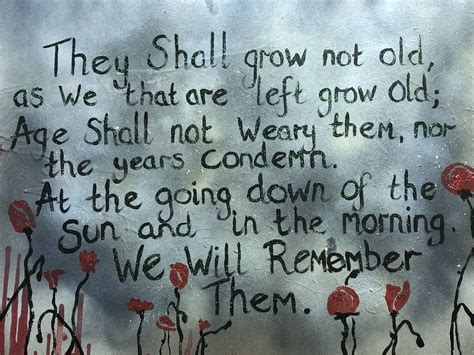 They Shall grow not old,
as We that are left grow Old;
Age Shall not Weary them, nor
the years Condemn.
At the going down of the
Sun and in the morning.
We Will Remember
Them.